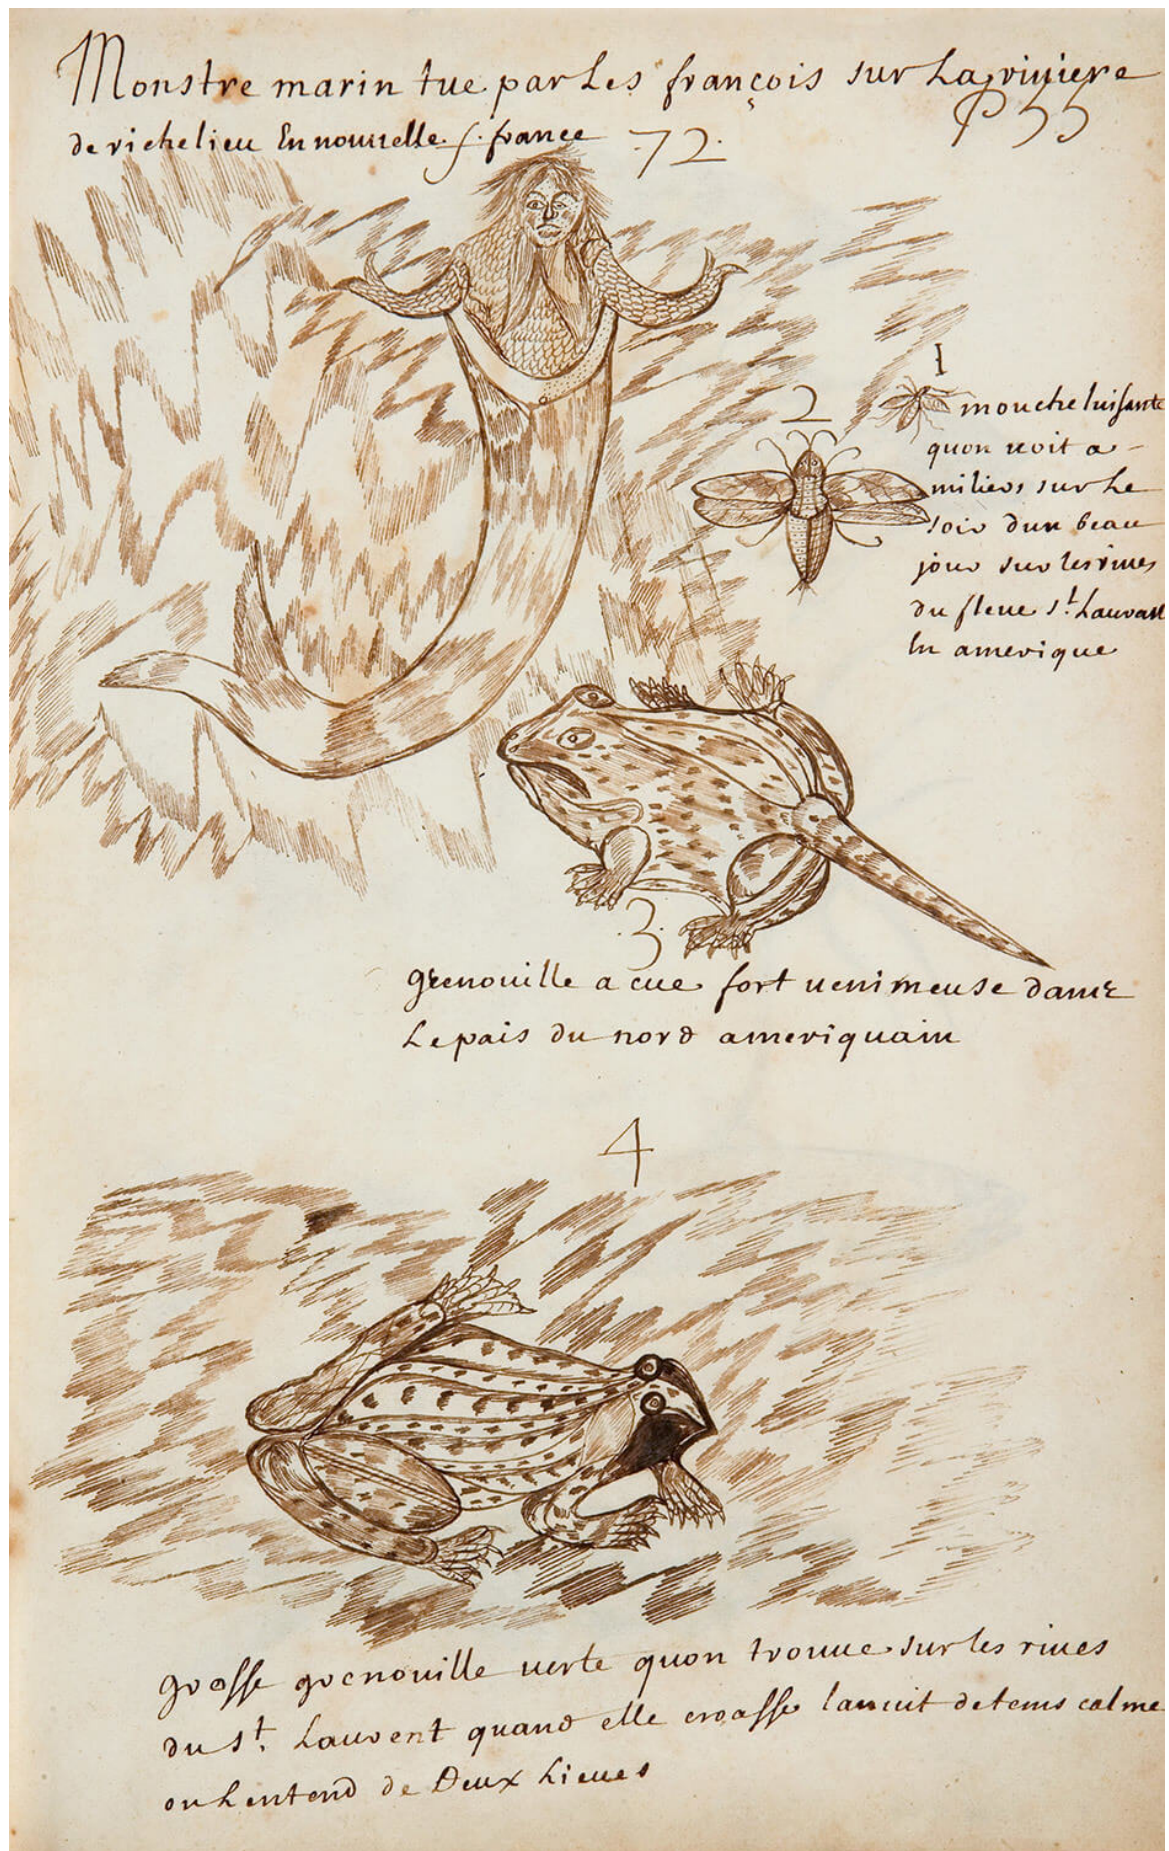 Monstre marin tue par Les françois sur La riuiere
P 55
de richelieu En nouuelle f. france 72.
1
2
mouche luisante
quon uoit a -
miliers sur Le
soir dun beau
jour sur les riues
du fleue st. Lauvant
En amerique
3
grenouille a cue fort uenimeuse dans
Le pais du nord ameriquain
4
grosse grenouille uerte quon trouue sur les riues
du st. Lauvent quand elle croasse lanuit detems calme
on Lentend de Deux Lieues